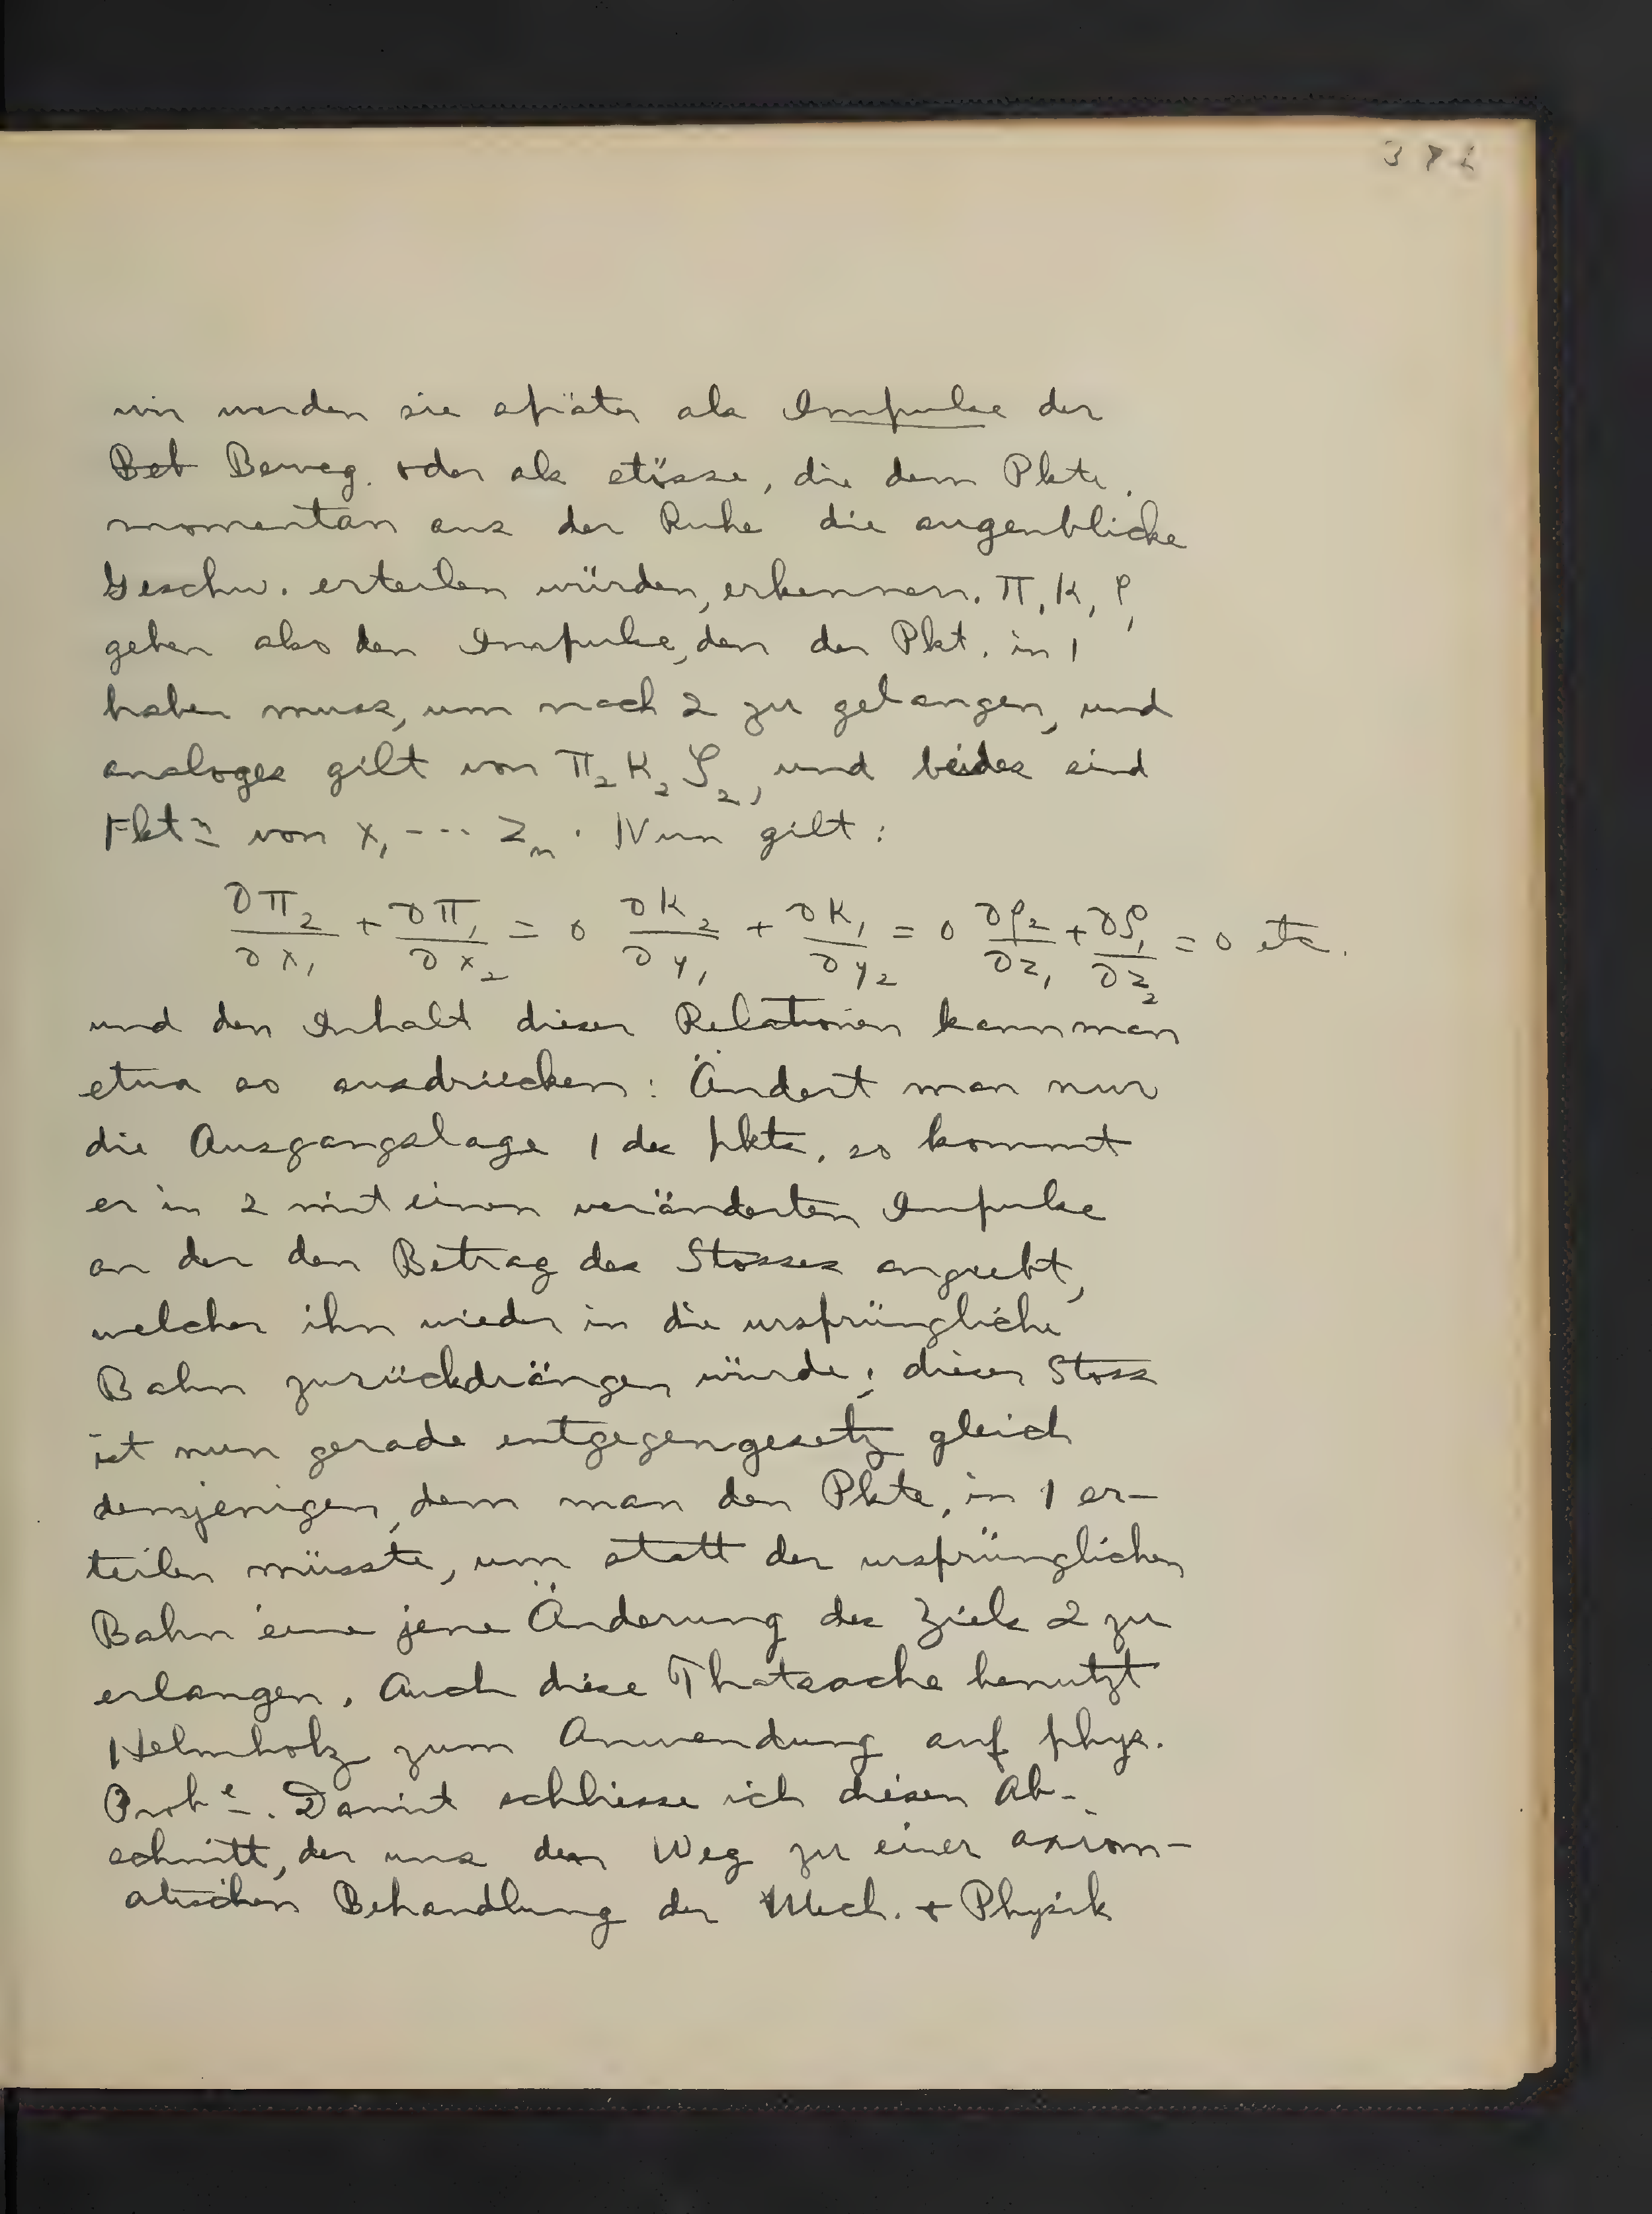 wir werden sie später als Impulse der
Bet Beweg. oder als stösse, die dem Pkte.
momentan aus der Ruhe die augenblicke
Geschw. erteilen würden, erkennen. Π, K, ρ,
geben also den Impulse, den der Pkt. in 1
haben muss, um nach 2 zu gelangen, und
analoges gilt von Π₂ K₂ ρ₂, und beides sind
Fktn von x₁ --- zₙ. Nun gilt:
∂Π₂/∂x₁ + ∂Π₁/∂x₂ = 0 ∂K₂/∂y₁ + ∂K₁/∂y₂ = 0 ∂ρ₂/∂z₁ + ∂ρ₁/∂z₂ = 0 etc.
und den Inhalt dieser Relationen kann man
etwa so ausdrücken: Ändert man nur
die Ausgangslage 1 des pkts, so kommt
er in 2 mit einen veränderten Impulse
an der den Betrag des Stosses angiebt,
welcher ihn wieder in die ursprüngliche
Bahn zurückdrängen würde; dieser Stoss
ist nun gerade entgegengesetz gleich
demjenigen, dem man den Pkte, in 1 er-
teilen müsste, um statt der ursprünglichen
Bahn eine jene Änderung des Ziels 2 zu
erlangen. Auch diese Thatsache benutzt
Helmholz zum Anwendung auf phys.
Probe. Damit schliesse ich diesen Ab-
schnitt, der uns den Weg zu einer axiom-
atischen Behandlung der Mech. + Physik